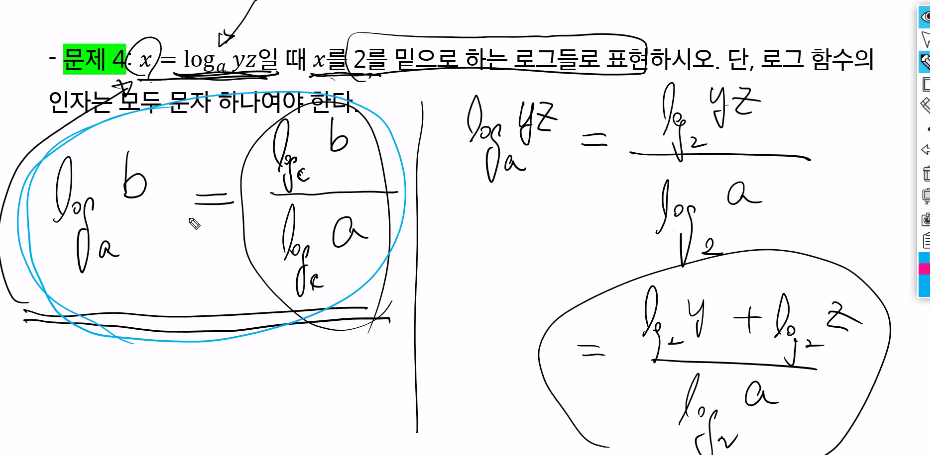 - 문제 4: x = logₐ yz일 때 x를 2를 밑으로 하는 로그들로 표현하시오. 단, 로그 함수의
인자는 모두 문자 하나여야 한다.
logₐ b = log_c b / log_c a
logₐ yz = log₂ yz / log₂ a
= log₂ y + log₂ z / log₂ a